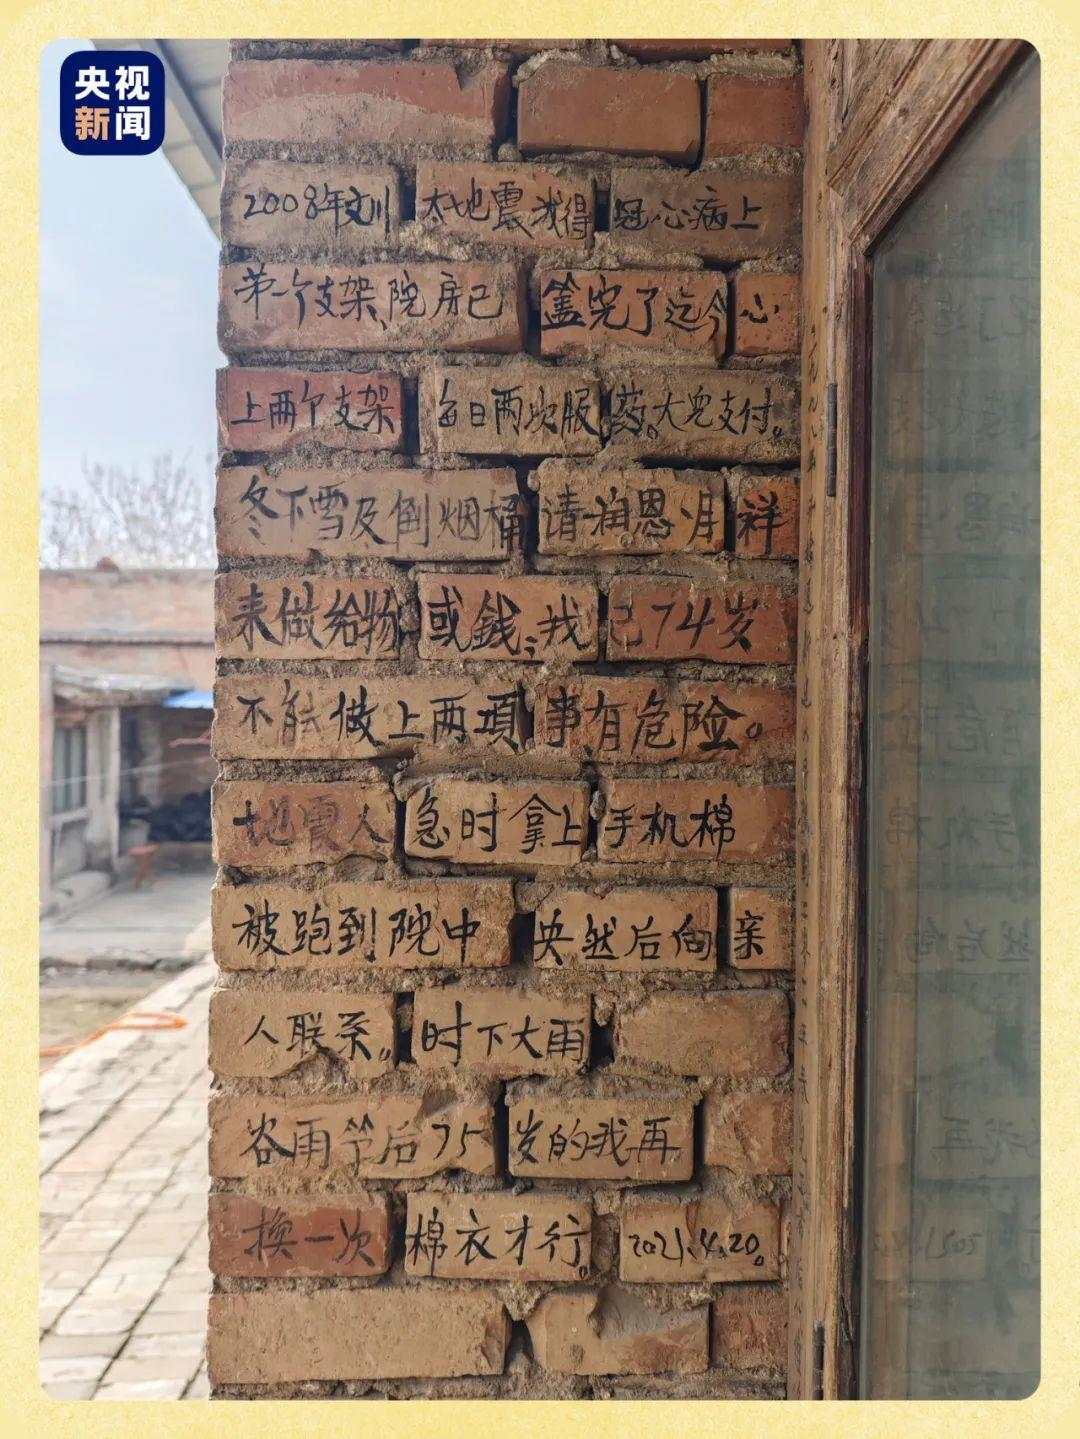 央视
新闻
2008年汶川大地震我得冠心病上
第一个支架,院房已盖完了迄今心
上两个支架每日两次服药。大儿支付。
冬下雪及倒烟桶请润恩月祥
来做给物或錢,我已74岁
不能做上两項事有危险。
地震人急时拿上手机棉
被跑到院中央然后向亲
人联系。时下大雨
谷雨节后75岁的我再
换一次棉衣才行。2021.4.20。